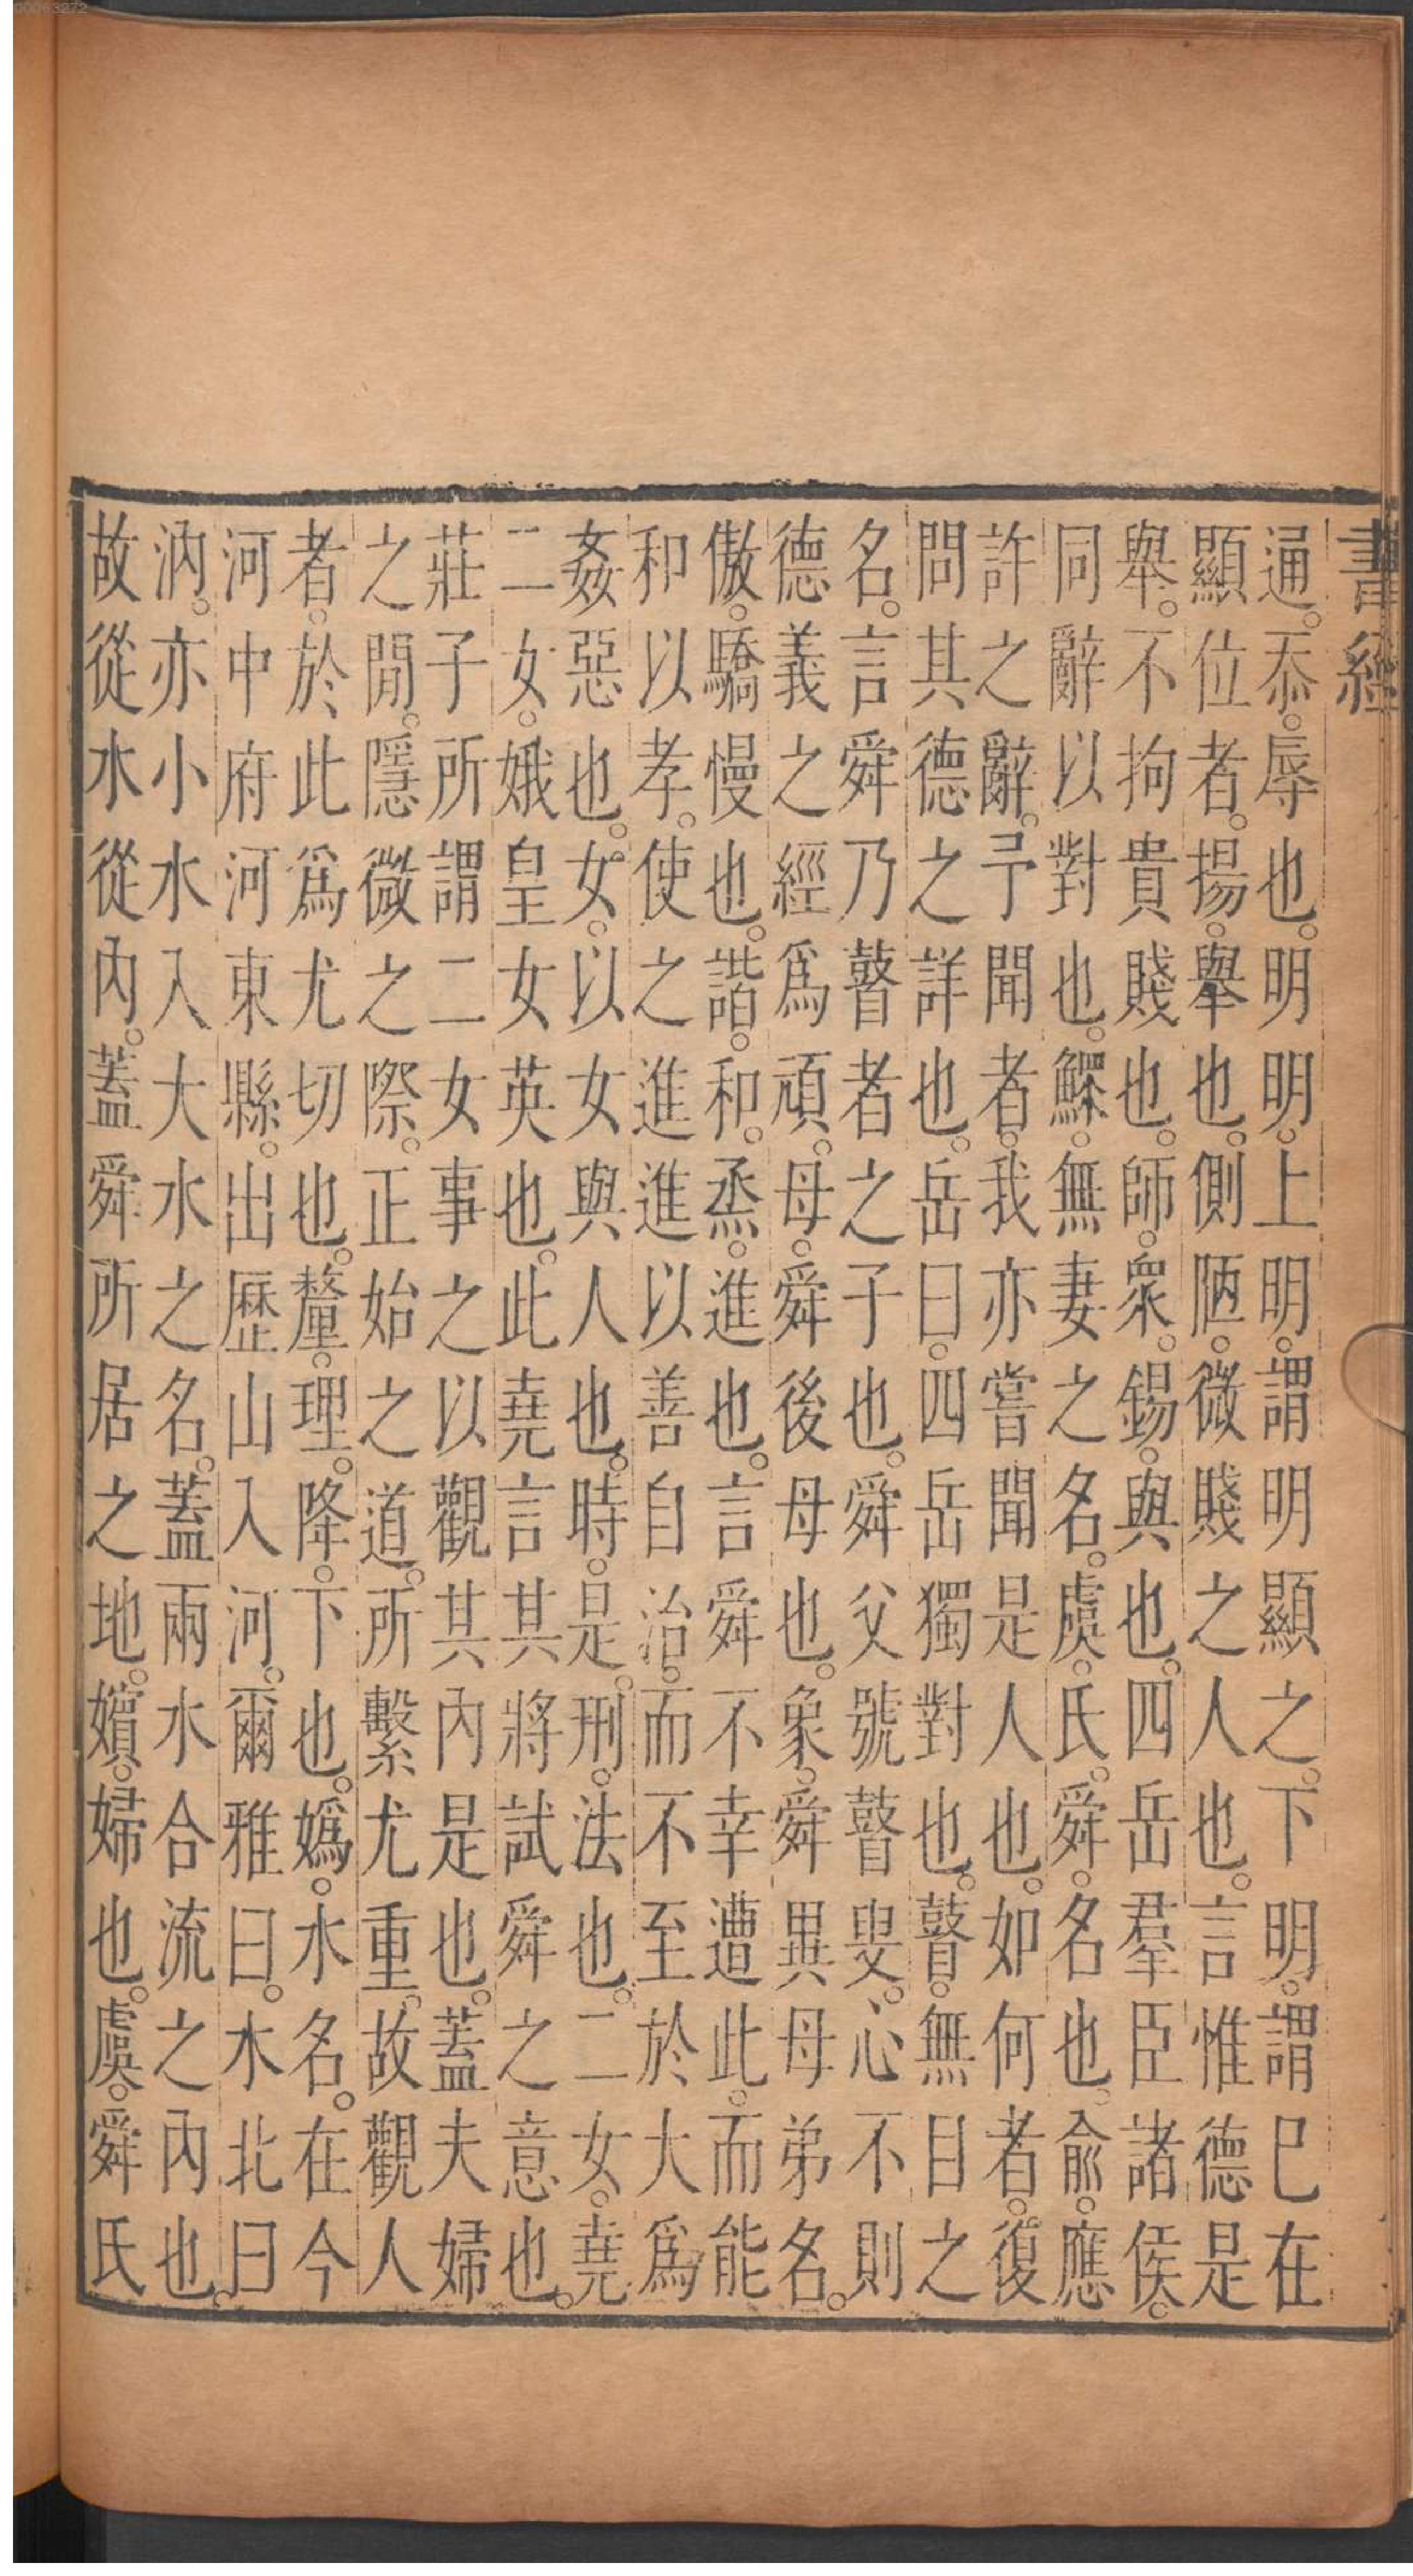 00063272
書經
通。忝。辱也。明明。上明。謂明顯之。下明。謂已在
顯位者。揚。舉也。側陋。微賤之人也。言惟德是
舉。不拘貴賤也。師。衆。錫。與也。四岳羣臣諸侯。
同辭以對也。鰥。無妻之名。虞。氏。舜。名也。俞。應
許之辭。予聞者。我亦嘗聞是人也。如何者。復
問其德之詳也。岳曰。四岳獨對也。瞽。無目之
名。言舜乃瞽者之子也。舜父號瞽叟。心不則
德義之經爲頑。母。舜後母也。象。舜異母弟名。
傲。驕慢也。諧。和。烝。進也。言舜不幸遭此。而能
和以孝。使之進進以善自治。而不至於大爲
姦惡也。女。以女與人也。時。是。刑。法也。二女。堯
二女。娥皇女英也。此堯言其將試舜之意也。
莊子所謂二女事之以觀其內是也。蓋夫婦
之閒。隱微之際。正始之道。所繫尤重。故觀人
者。於此爲尤切也。釐。理。降。下也。嬀。水名。在今
河中府河東縣。出歷山入河。爾雅曰。水北曰
汭。亦小水入大水之名。蓋兩水合流之內也。
故從水從內。蓋舜所居之地。嬪。婦也。虞。舜氏